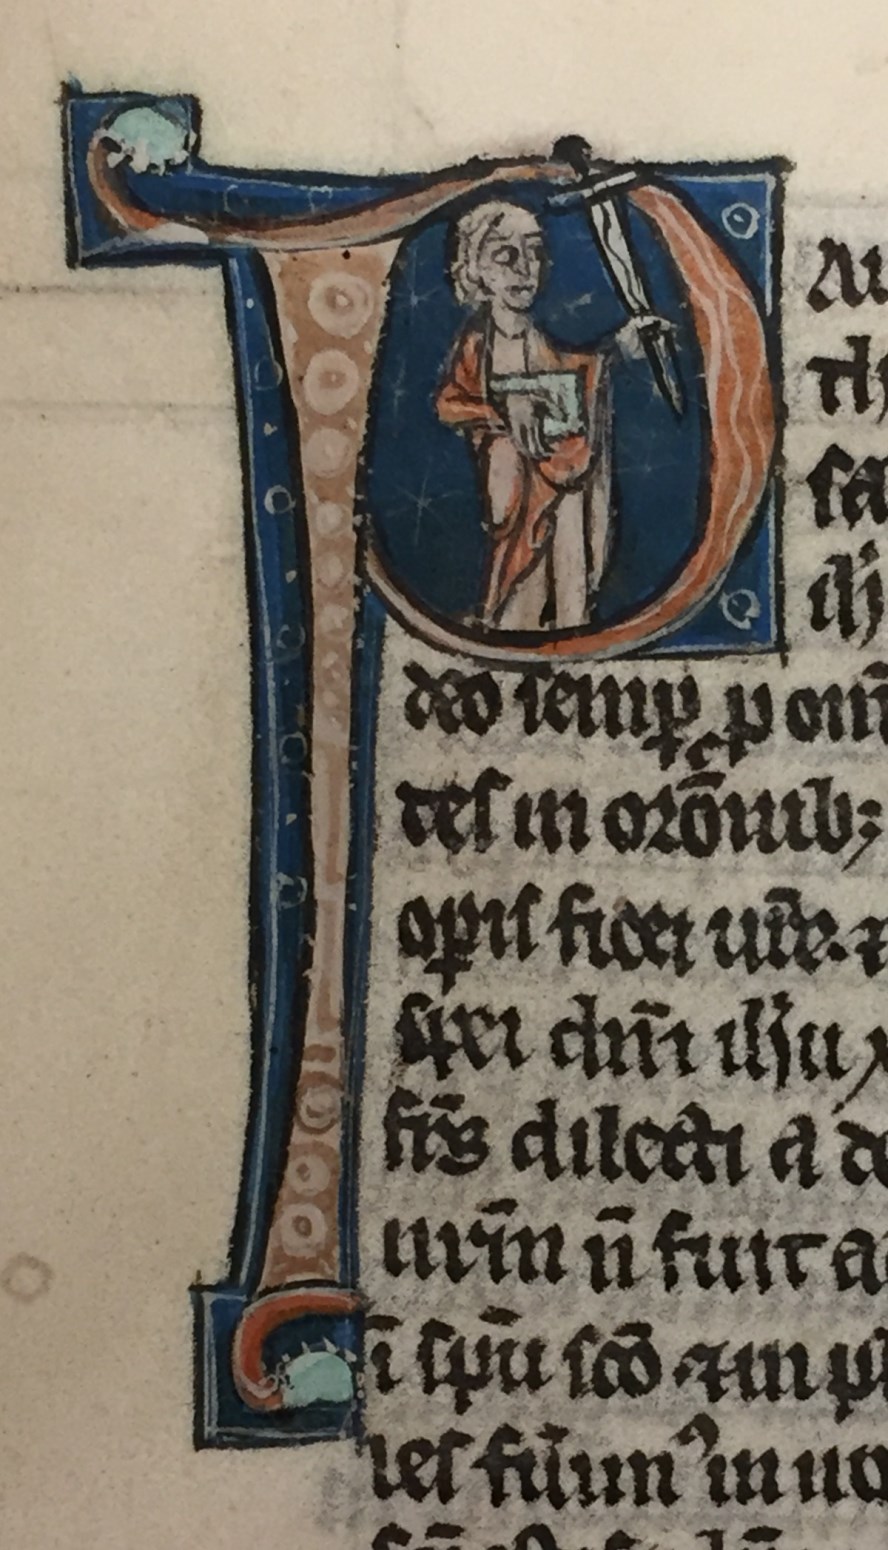 P au
th
sa
ih
deo semꝑ ꝓ om̅
tes in or̅onib;
opis fidei ur̅e. ⁊
spei dn̅i ihu x
fr̅s dilecti a de
ur̅m n̅ fuit a
i̅ spu̅ sc̅o ⁊ in pl
les fuim⁹ in uo